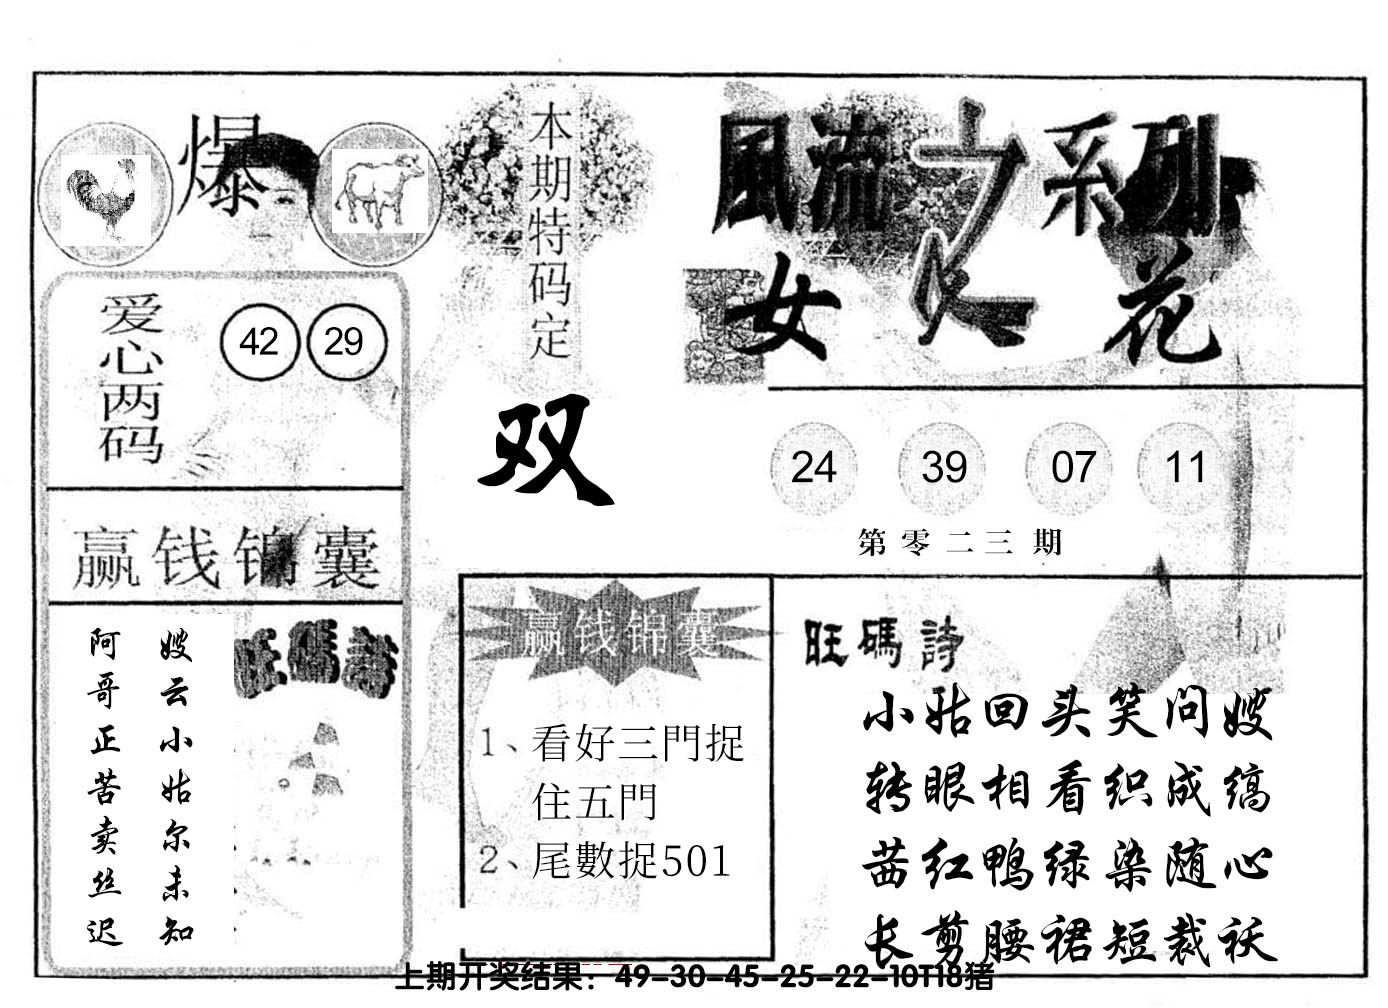 爆
本期特码定
双
風流之系列
女人花
爱心两码
42 29
24 39 07 11
第零二三期
赢钱锦囊
旺碼詩
嫂云小姑尔未知
阿哥正苦卖丝迟
赢钱锦囊
1、看好三門捉
住五門
2、尾數捉501
旺碼詩
小姑回头笑问嫂
转眼相看织成缟
茜红鸭绿染随心
长剪腰裙短裁袄
上期开奖结果：49-30-45-25-22-10T18猪